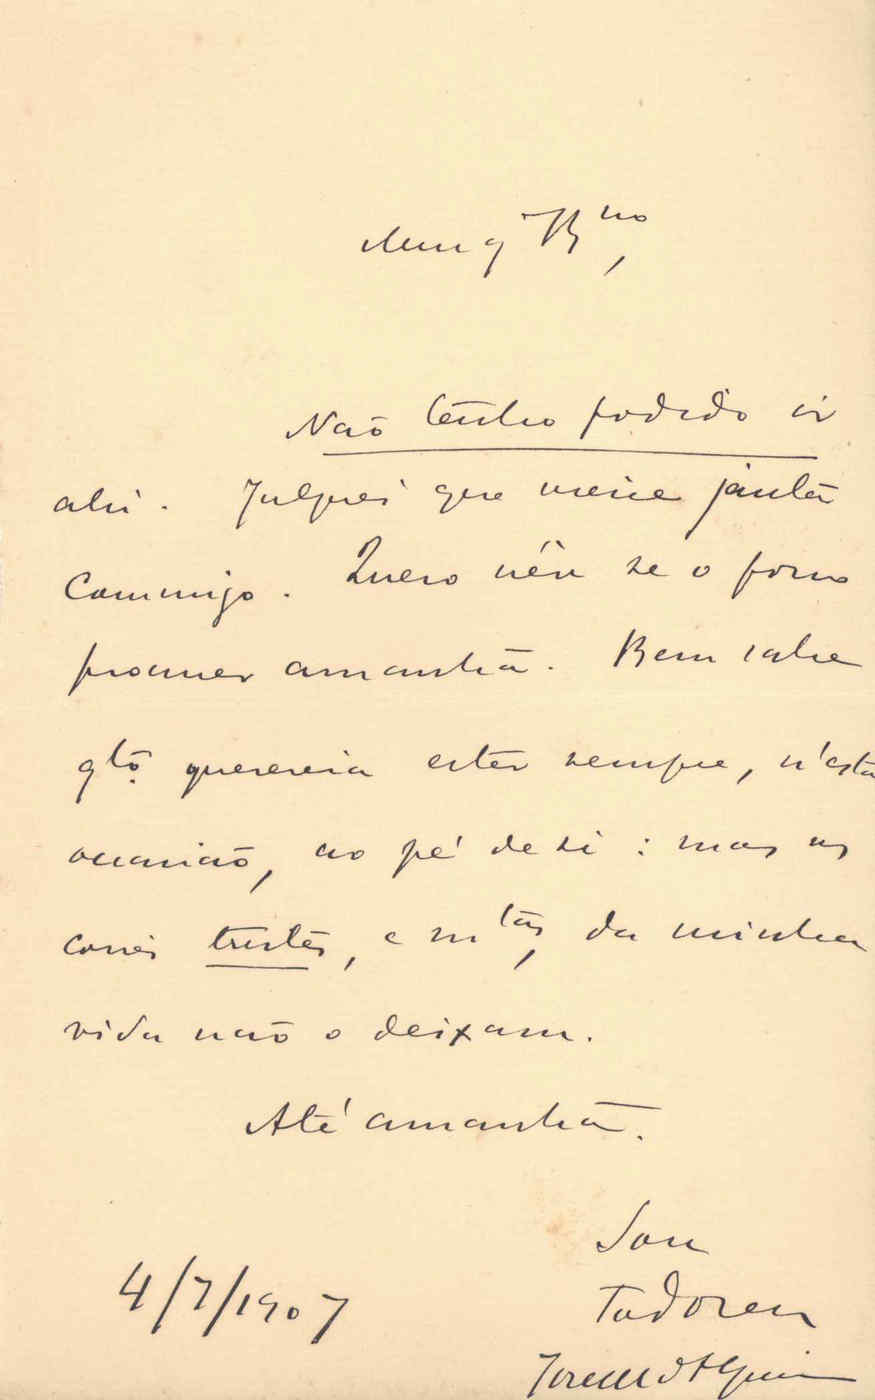 Meu q.<sup>do</sup> B<sup>no</sup>,
Não tenho podido ir
ahi. Julguei que viesse jantar
commigo. Quero vêr se o posso
procurar amanhã. Bem sabe
q<sup>to</sup> quereria estar sempre, n'esta
occasião, ao pé de si: mas as
coisas tristes, e m<sup>tas</sup>, da minha
vida não o deixam.
Até amanhã.
Sou
Todo seu
4/7/1907